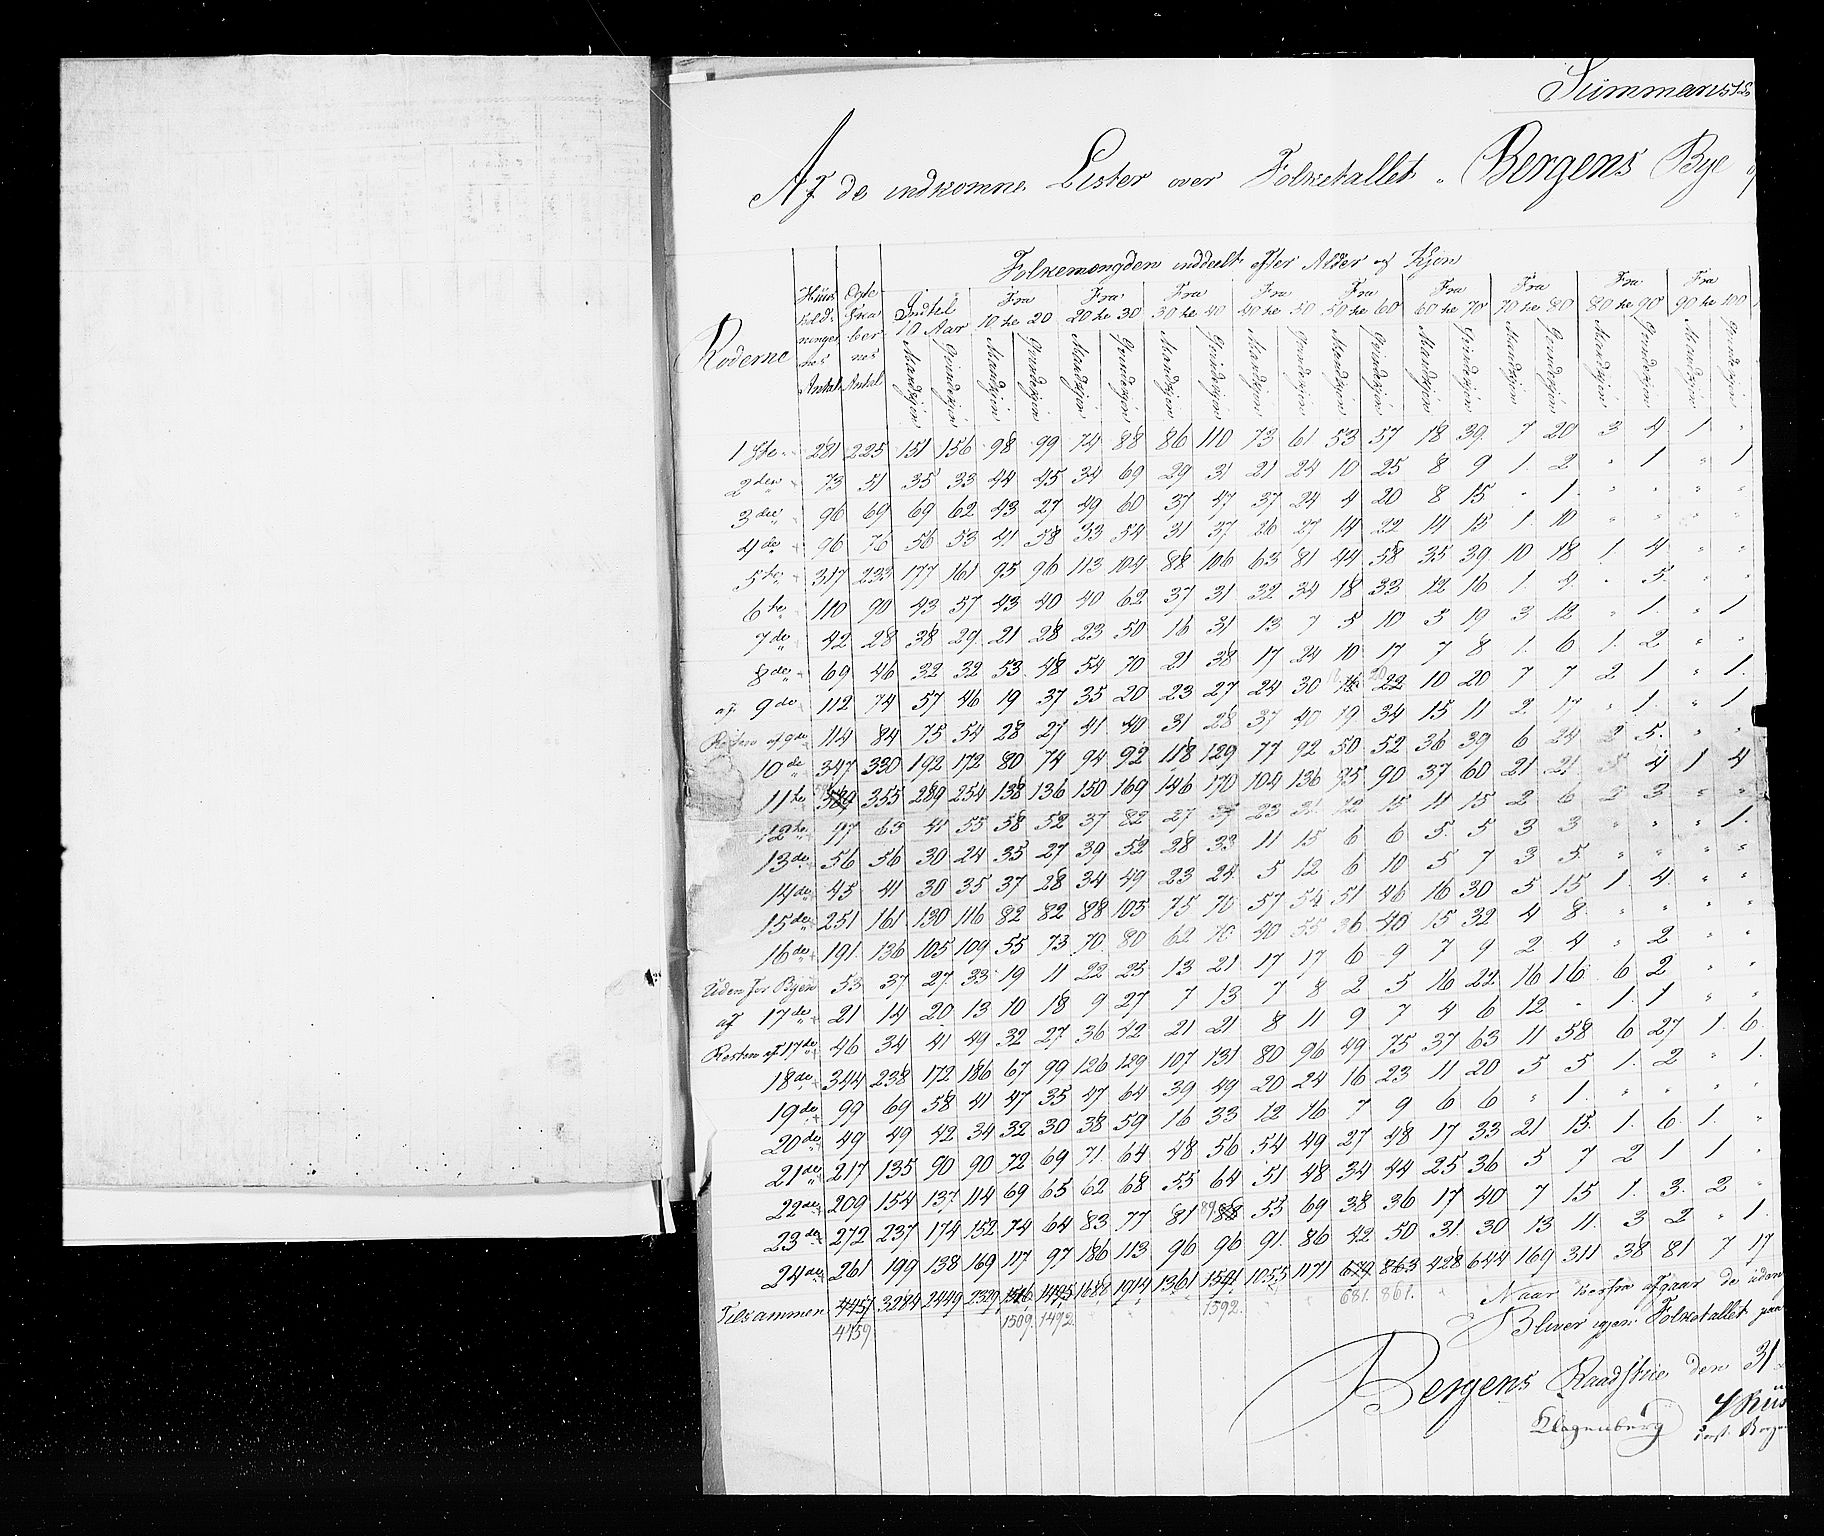 Summarisk
Af de indkomne Lister over Folketallet i Bergens Bye
Folkemengden inddeelt efter Alder og Kjøn
Roderne
Huus holdningernes Antal
Ægteskabernes Antal
Indtil 10 Aar
Fra 10 te 20
Fra 20 te 30
Fra 30 te 40
Fra 40 te 50
Fra 50 te 60
Fra 60 te 70
Fra 70 te 80
Fra 80 te 90
Fra 90 te 100
Mandkjøn Qvindekjøn Mandkjøn Qvindekjøn Mandkjøn Qvindekjøn Mandkjøn Qvindekjøn Mandkjøn Qvindekjøn Mandkjøn Qvindekjøn Mandkjøn Qvindekjøn Mandkjøn Qvindekjøn Mandkjøn Qvindekjøn Mandkjøn Qvindekjøn
1ste 281 225 151 156 98 99 74 88 86 110 73 61 53 57 18 39 7 20 3 4 1 "
2den 73 51 35 33 44 45 34 69 29 31 21 24 10 25 8 9 1 2 " 1 " 1
3die 96 69 69 62 43 27 49 60 37 47 37 24 4 20 8 15 " 1 " " " "
4de 96 76 56 53 41 58 33 54 31 37 26 27 14 22 14 15 1 10 " " " "
5te 317 233 177 161 95 96 113 104 88 106 63 81 44 58 35 39 10 18 1 4 " "
6te 110 90 43 57 43 40 40 62 37 31 32 34 18 33 12 16 1 4 " 5 " "
7de 42 28 38 29 21 28 23 50 16 31 13 7 5 10 3 19 3 12 " 1 " 1
8de 69 46 32 32 53 48 54 70 21 38 17 24 10 17 7 8 1 6 1 2 " "
af 9de 112 74 57 46 19 37 35 20 23 27 24 30 22 10 20 7 7 2 1 " 1
Resten af 9de 114 84 75 54 28 27 41 40 31 28 37 40 19 34 15 11 2 17 " 1 " 1
10de 347 330 192 172 80 74 94 92 118 129 77 92 50 52 36 39 6 24 2 5 " "
11te 389 355 289 254 138 136 150 169 146 170 104 136 75 90 37 60 21 21 5 4 1 4
12te 97 63 41 55 58 52 37 82 27 39 23 31 12 15 11 15 2 6 2 3 " "
13de 56 56 30 24 35 27 39 52 28 33 11 15 6 6 5 5 3 3 " " " 1
14de 45 41 30 35 37 28 34 49 23 24 5 12 6 10 5 7 3 5 " " " "
15de 251 161 130 116 82 82 88 105 75 70 57 54 51 46 16 30 5 15 1 4 " "
16de 191 136 105 109 55 73 70 80 62 70 40 55 36 40 15 32 4 8 " " " "
Uden for Byen 53 37 27 33 19 11 22 25 13 21 17 17 6 9 7 9 2 4 " 2 " "
af 17de 21 14 20 13 10 18 9 27 7 13 7 8 2 5 16 22 16 16 6 2 " "
Resten af 17de 46 34 41 49 32 27 36 42 21 21 8 11 9 7 4 6 12 " 1 1 " "
18de 344 238 172 186 67 99 126 129 107 131 80 96 49 75 37 63 11 58 6 27 1 6
19de 99 69 58 41 47 35 47 64 39 49 20 24 16 23 11 20 5 5 1 2 " 1
20de 49 49 42 34 32 30 38 59 16 33 12 16 7 9 6 6 " 1 " " " "
21de 217 135 90 90 72 69 71 64 48 56 54 49 27 48 17 33 21 15 1 6 1 "
22de 209 154 137 114 69 65 62 68 55 64 51 48 34 44 25 36 5 7 2 1 1 "
23de 272 237 174 152 74 64 83 77 81 89 88 55 69 38 36 17 40 7 15 1 3 2 "
24de 261 199 138 169 117 97 186 113 96 96 91 86 42 50 31 30 13 11 3 2 " 1
Tilsammen 4457 3284 2449 2329 1516 1495 1688 1914 1361 1541 1055 1171 679 863 428 644 169 311 38 81 7 17
4459 1509 1492 1592 681 861
Naar herfra afgaar de uden
Bliver igjen Folketallet paa
Bergens Raadstue den 31
Klagenberg